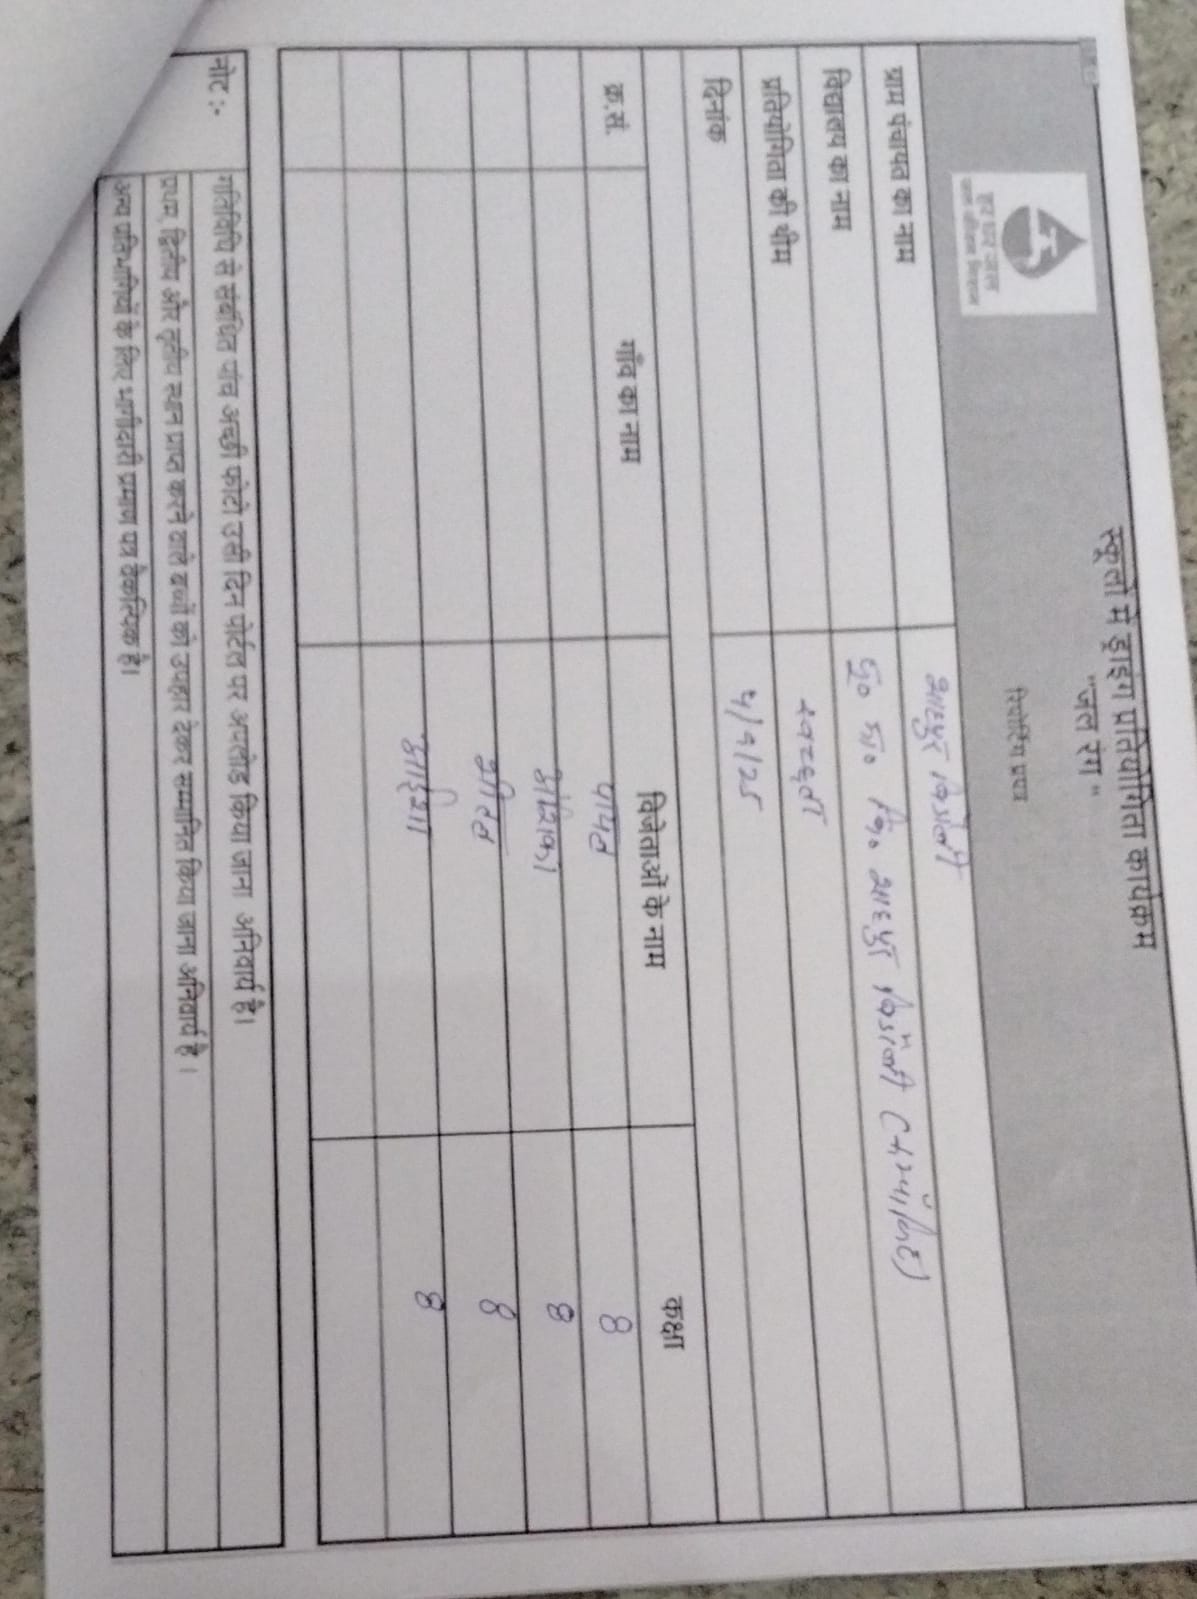 स्कूलों में ड्राइंग प्रतियोगिता कार्यक्रम
"जल रंग"
रिपोर्टिंग प्रपत्र
हर घर जल
जल जीवन मिशन
ग्राम पंचायत का नाम शाहपुर
विद्यालय का नाम शाहपुर
प्रतियोगिता की थीम स्वच्छता
दिनांक
क्र.सं. गाँव का नाम विजेताओं के नाम कक्षा
पायल 8
अंशिका 8
8
8
नोट :- गतिविधि से संबंधित पांच अच्छी फोटो उसी दिन पोर्टल पर अपलोड किया जाना अनिवार्य है।
प्रथम, द्वितीय और तृतीय स्थान प्राप्त करने वाले बच्चों को उपहार देकर सम्मानित किया जाना अनिवार्य है।
अन्य प्रतिभागियों के लिए भागीदारी प्रमाण पत्र वैकल्पिक है।